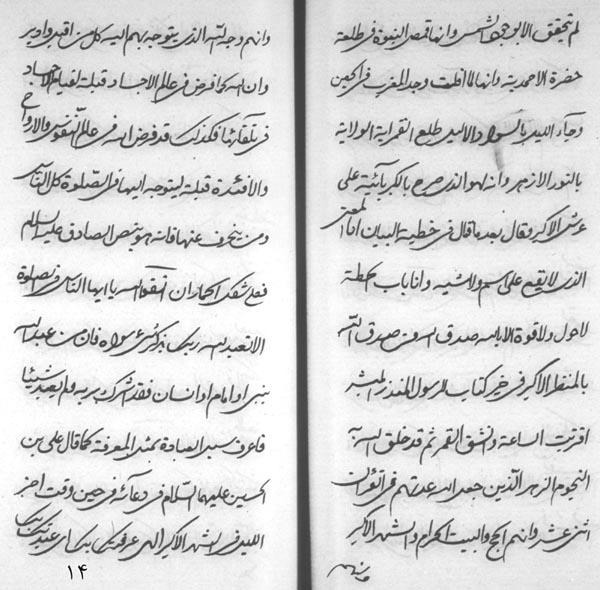 لم تتحقق الا بوجود الشمس وانها قمص النبوة فی طلعة
حضرة الاحمدیة وانها لما افلت وجد المغرب فی الحین
وجاء اللیل بالسواد الالیل طلع القمر آیة الولایة
بالنور الازهر وانه لهو الذی صرح بالکبریائیة علی
عرش الاکبر وقال بعد ما قال فی خطبة البیان انا المعنی
الذی لا یقع علی اسم ولا شبه وانا باب حطة
لا حول ولا قوة الا بالله صدق الله ومن صدق الله
بالمنظر الاکبر فی خیر کتاب الرسول المنذر المبشر
اقتربت الساعة وانشق القمر ثم قد خلق الله
النجوم الزهر الذین جعل الله عدتهم فی القرآن
اثنی عشر وانهم الحج والبیت الحرام والشهر الاکبر
وانهم وجه الله الذی یتوجه بهم الیه کل من اقبل وادبر
وان الله کما فرض فی عالم الاجساد قبلة لقیام الاجساد
فی تلقائها فکذلک قد فرض الله فی عالم النفوس والارواح
والافئدة قبلة لیتوجه الیها فی الصلوة کل الناس
ومن ینحرف عنها فانه هو بنص الصادق علیه السلام
فعلی شفی الجهار ان اتقوا الله یا ایها الناس فی الصلوة
الا تعبد الله ربک بذکر شیء سواه فان من عبد الله
بنبی او امام او انسان فقد اشرک بربه ولم یعبد شیئا
فاعرف سبیل العبادة بمثل المعرفة کما قال علی بن
الحسین علیهما السلام فی دعائه فی حین وقت اخر
اللیل فی الشهر الاکبر الهی عرفتک بک ای عبدتک بک
۱۴